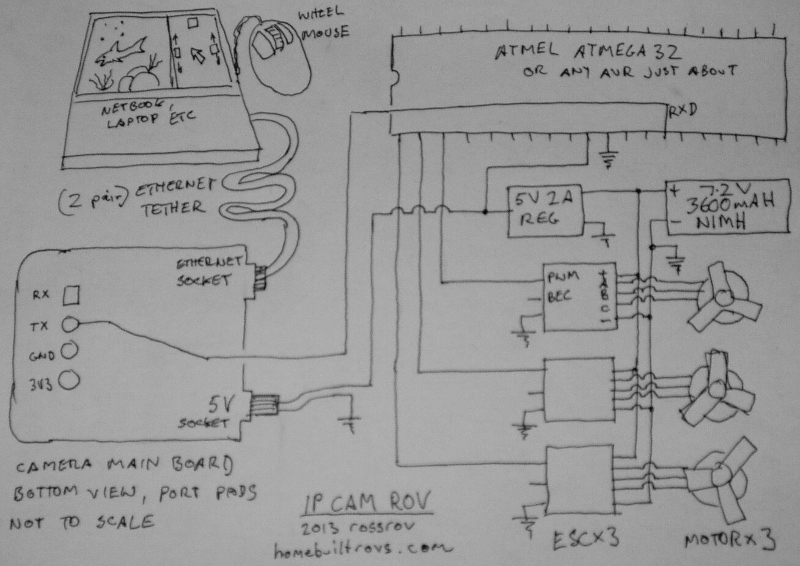 WHEEL
MOUSE
NETBOOK,
LAPTOP ETC
(2 pair) ETHERNET
TETHER
ATMEL ATMEGA 32
OR ANY AVR JUST ABOUT
RXD
5V 2A
REG
+ 7.2V
3600MAH
- NIMH
ETHERNET
SOCKET
RX
TX
GND
3V3
5V
SOCKET
PWM +
A
BEC B
C
-
CAMERA MAIN BOARD
BOTTOM VIEW, PORT PADS
NOT TO SCALE
IP CAM ROV
2013 rossrov
homebuiltrovs.com
ESCX3
MOTORX3